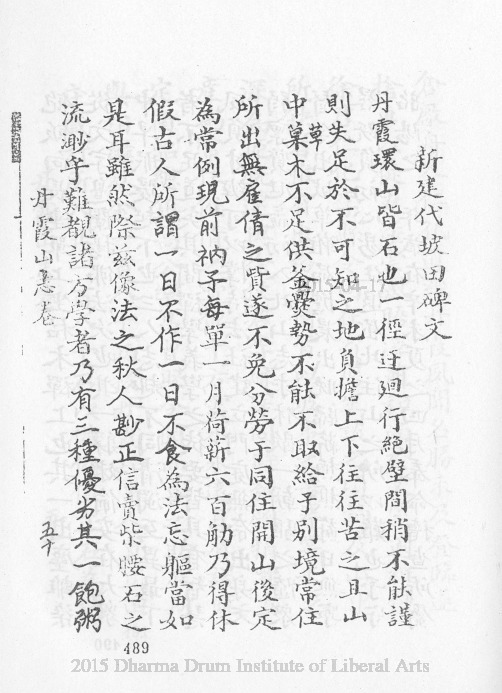 新建代坡田碑文
丹霞環山皆石也一徑迂迴行絕壁間稍不能謹
則失足於不可知之地負擔上下往往苦之且山
中草菓木不足供釜爨勢不能不取給于別境常住
所出無雇倩之貲遂不免分勞于同住開山後定
為常例現前衲子每單一月荷薪六百觔乃得休
假古人所謂一日不作一日不食為法忘軀當如
是耳雖然際茲像法之秋人尠正信賣柴腰石之
流渺乎難覩諸方學者乃有三種優劣其一飽粥
丹霞山志卷
五十
489
2015 Dharma Drum Institute of Liberal Arts